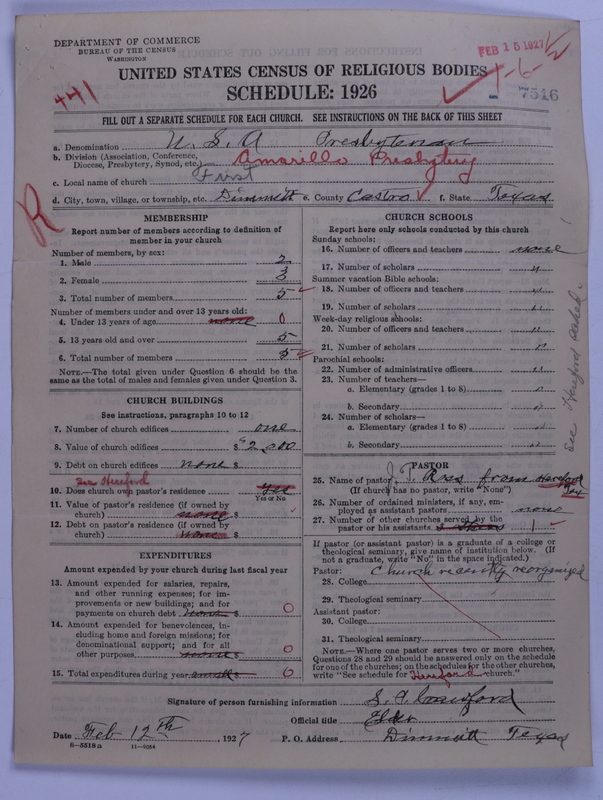 DEPARTMENT OF COMMERCE
BUREAU OF THE CENSUS
WASHINGTON
FEB 15 1927
1-6-1/2
441
7516
UNITED STATES CENSUS OF RELIGIOUS BODIES
SCHEDULE: 1926
FILL OUT A SEPARATE SCHEDULE FOR EACH CHURCH. SEE INSTRUCTIONS ON THE BACK OF THIS SHEET
a. Denomination U. S. A Presbyterian
b. Division (Association, Conference, Diocese, Presbytery, Synod, etc.) Amarillo Presbytery
c. Local name of church First
d. City, town, village, or township, etc. Dimmitt e. County Castro f. State Texas
R
MEMBERSHIP
Report number of members according to definition of
member in your church
Number of members, by sex:
1. Male 2
2. Female 3
3. Total number of members 5
Number of members under and over 13 years old:
4. Under 13 years of age none 0
5. 13 years old and over 5
6. Total number of members 5
NOTE.—The total given under Question 6 should be
same as the total of males and females given under Question 3.
CHURCH BUILDINGS
See instructions, paragraphs 10 to 12
7. Number of church edifices one
8. Value of church edifices $ 2,000
9. Debt on church edifices none $
See Hereford
10. Does church own pastor's residence Yes
Yes or No
11. Value of pastor's residence (if owned by
church) none $
12. Debt on pastor's residence (if owned by
church) none $
EXPENDITURES
Amount expended by your church during last fiscal year
13. Amount expended for salaries, repairs,
and other running expenses; for im-
provements or new buildings; and for
payments on church debt none $ 0
14. Amount expended for benevolences, in-
cluding home and foreign missions; for
denominational support; and for all
other purposes none $ 0
15. Total expenditures during year $ 0
CHURCH SCHOOLS
Report here only schools conducted by this church
Sunday schools:
16. Number of officers and teachers none
17. Number of scholars "
Summer vacation Bible schools:
18. Number of officers and teachers "
19. Number of scholars "
Week-day religious schools:
20. Number of officers and teachers "
21. Number of scholars "
Parochial schools:
22. Number of administrative officers "
23. Number of teachers—
a. Elementary (grades 1 to 8) "
b. Secondary "
24. Number of scholars—
a. Elementary (grades 1 to 8) "
b. Secondary "
See Hereford
PASTOR
25. Name of pastor J. T. from Hereford Tex
(If church has no pastor, write "None")
26. Number of ordained ministers, if any, em-
ployed as assistant pastors none
27. Number of other churches served by the
pastor or his assistants 1
If pastor (or assistant pastor) is a graduate of a college or
theological seminary, give name of institution below. (If
not a graduate, write "No" in the space indicated.)
Pastor: Church recently reorganized
28. College
29. Theological seminary
Assistant pastor:
30. College
31. Theological seminary
NOTE.—Where one pastor serves two or more churches,
Questions 28 and 29 should be answered only on the schedule
for one of the churches; on the schedules for the other churches,
write "See schedule for Hereford church."
Signature of person furnishing information S. A. Crawford
Official title Elder
Date Feb 12th, 1927 P. O. Address Dimmitt Texas
8-5519 a 11-9024